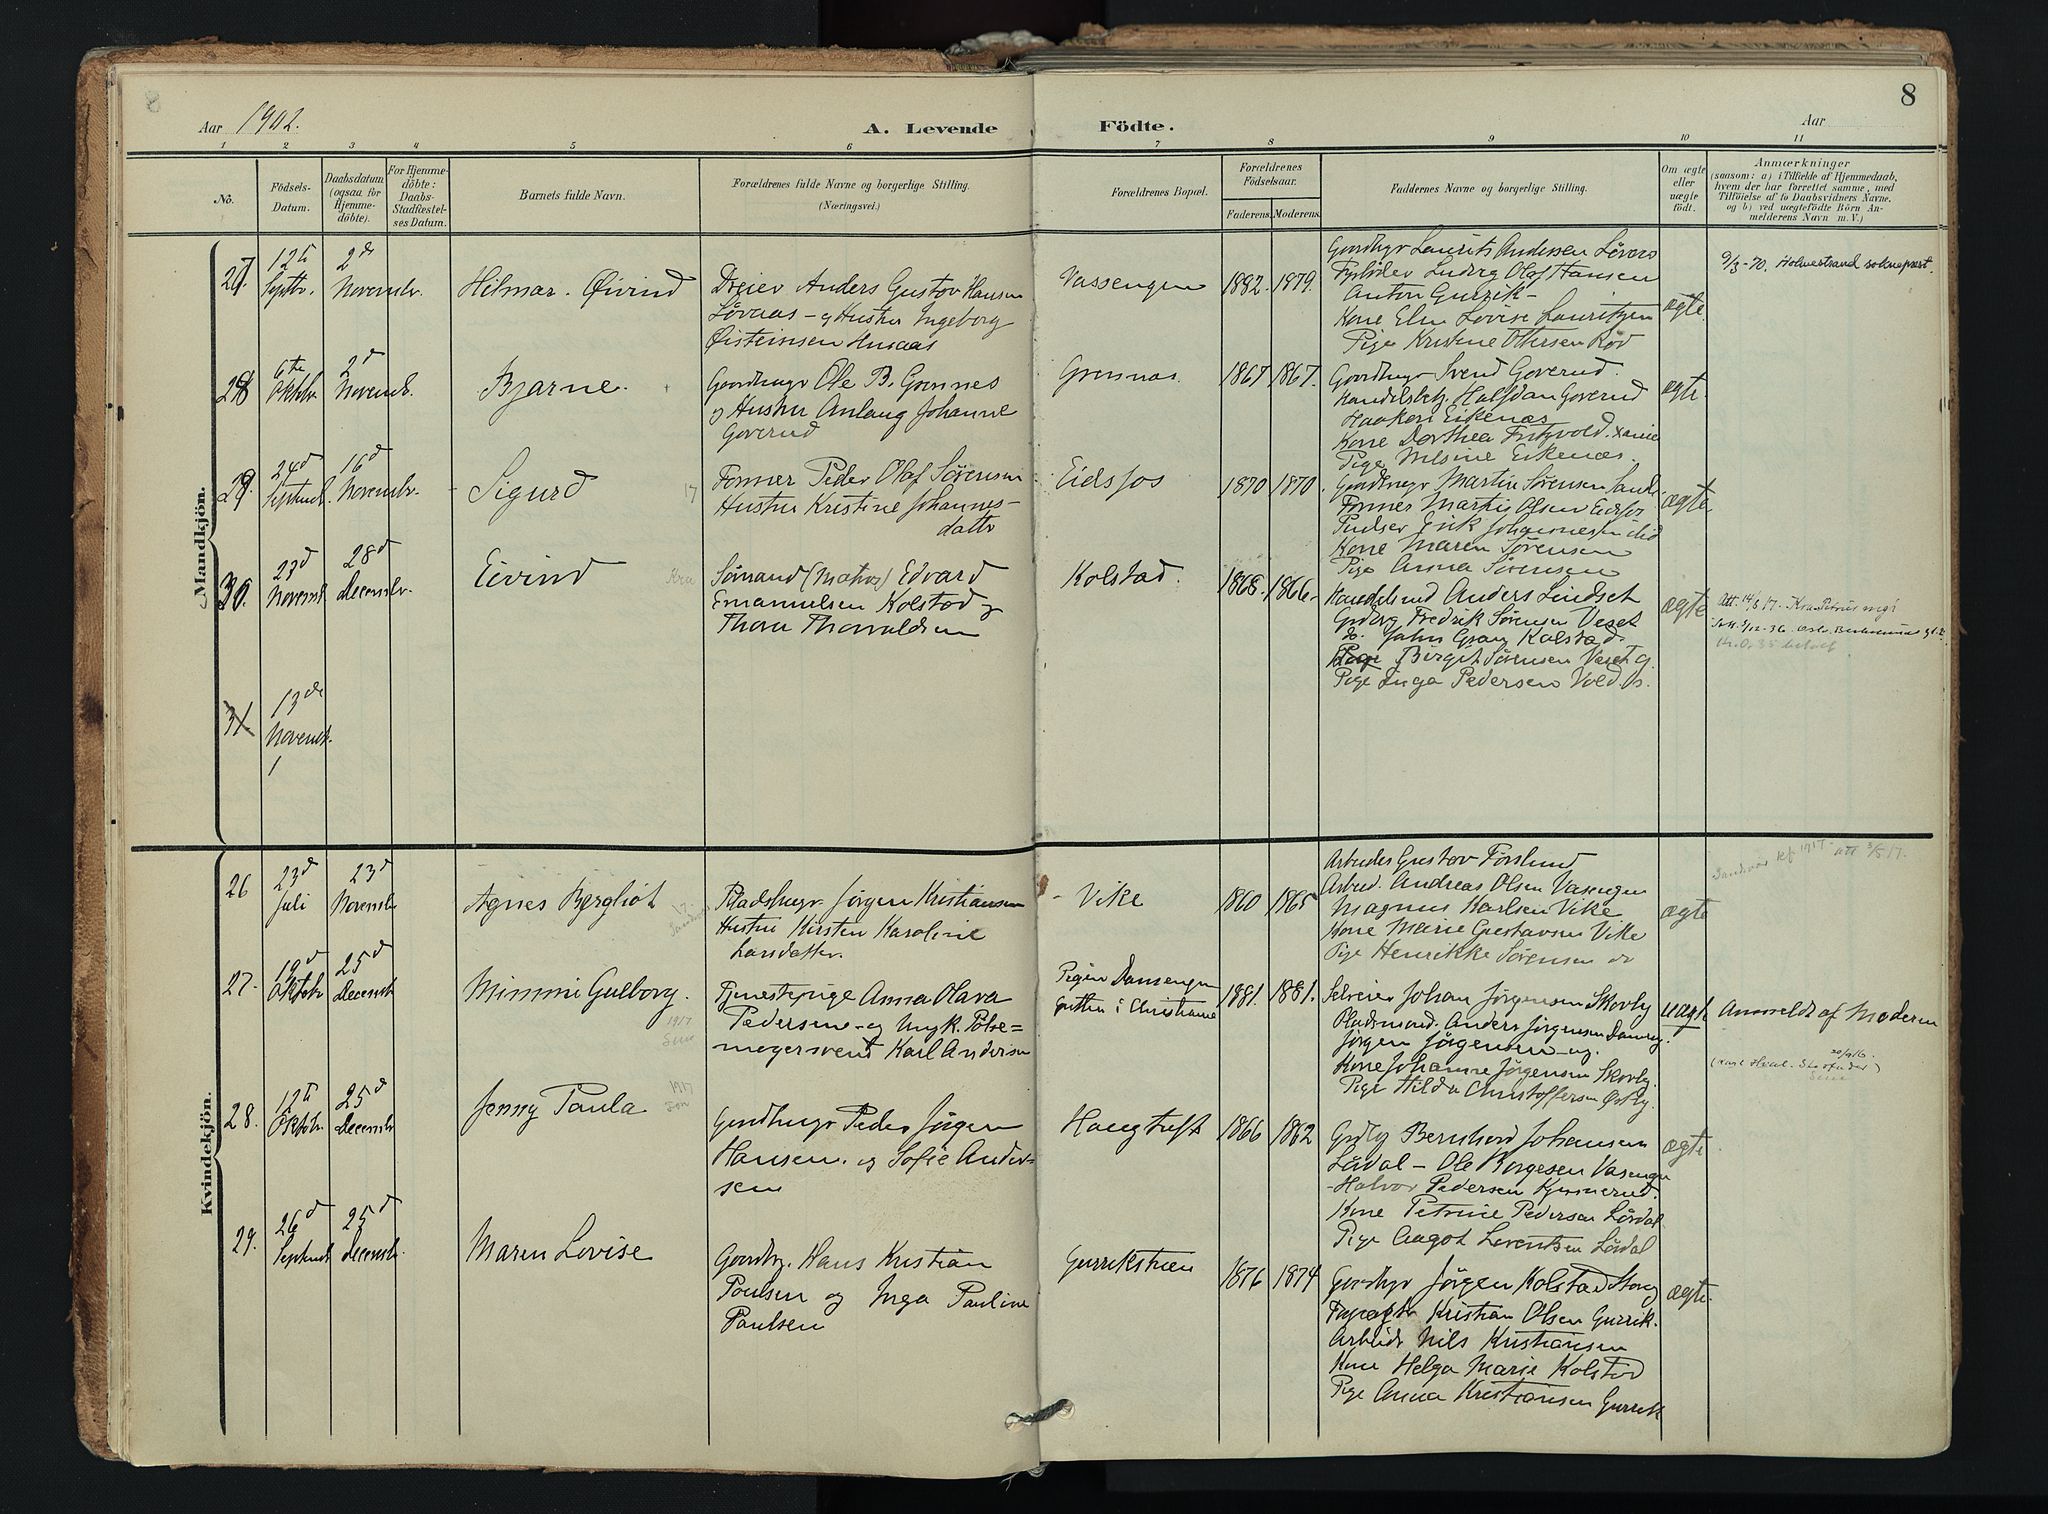 8
Aar 1902.
A. Levende
Födte.
Aar
1 2 3 4 5 6 7 8 9 10 11
No.
Födsels-
Datum.
Daabsdatum
(ogsaa for
Hjemme-
döbte).
For Hjemme-
döbte:
Daabs-
Stadfæstel-
ses Datum.
Barnets fulde Navn.
Forældrenes fulde Navne og borgerlige Stilling.
(Næringsvei.)
Forældrenes Bopæl.
Forældrenes
Födselsaar.
Faderens. Moderens.
Faddernes Navne og borgerlige Stilling.
Om ægte
eller
uægte
födt.
Anmærkninger
(saasom: a) i Tilfælde af Hjemmedaab,
hvem der har forrettet samme, med
Tilföielse af to Daabsvidners Navne.
og b) ved uægtefödte Börn An-
melderens Navn m. V.)
Mandkjön.
27.
12te
Septbr.
2de
Novembr.
Hilmar. Øivind
Dreier Anders Gustav Hansen
Løvaas – og Hustru Ingeborg
Øisteinsen Husaas
Vassengen
1882. 1879.
Gaardbgr Laurits Andersen Løvaas
Ludvig Olaf Hansen
Anton Gurrik –
Kone Elen Lovise Lauritzen
Pige Kristine Ottersen Rød
ægte
9/3-70. Holmestrand sokneprest.
28
6te
Oktbr.
2d
Novemb.
Bjarne.
Gaardbrugr Ole B. Grennes
og Hustru Anlaug Johanne
Goverud
Grennes.
1867 1867.
Gaardbrugr Svend Goverud.
Handelsbetj. Halfdan Goverud
Haakon Eikenæs
Kone Dorthea
Pige Nilsine Eikenæs.
ægte.
29.
24d
Septemb.
16d
Novembr.
Sigurd
17
Former Peder Olaf Sørensen
Hustru Kristine Johannes-
dattr
Eidsfos
1870 1870.
Gaardbrugr Martin Sørensen Sande.
Former Martin Olsen Eidsfos
Pudser Erik Johannesen ibid
Kone Maren Sørensen
Pige Anna Sørensen
ægte
30.
23d
Novemb
28d
Decembr.
Eivind
Kra
Sømand (Matros) Edvard
Emanuelsen Kolstad og
Thora Thorvaldsen
Kolstad.
1868. 1866.
Handelsmd Anders Lindset
Grdbrg Fredrik Sørensen Veset
do. John Gran Kolstad.
Pige Birgit Sørensen Veset g.
Pige Inga Pedersen Vold. do.
ægte
Att. 14/8 17. Kra Petrus mgh
31
13de
Novemb.
1
Kvindekjön.
26
23d
Juli
23d
Novemb
Agnes Bergliot
17.
Pladsbrugr. Jørgen Kristiansen
Hustru Kirsten Karoline
Larsdatter.
Vike
1860 1865
Arbeider Gustav Forslund
Arbeid. Andreas Olsen Vasengen
Magnus Karlsen Vike
Kone Marie Gustavsen Vike
Pige Henrikke Sørensen do
ægte
Sandsvær kf 1917 - att 3/5 17.
27.
19d
Oktobr
25d
Decemb
Mimmi Gulborg.
1917
Tjenestepige Anna Olava
Pedersen – og Ungk. Pølse=
magersvend Karl Andersen
Pigen Damengen
Gutten i Christiania
1881. 1881.
Selveier Johan Jørgensen Skovly
Pladsmand. Anders Jørgensen
Jørgen Jørgensen – ug.
Kone Johanne Jørgensen Skovly.
Pige Hilda Christoffersen Østby.
uægt
Anmeldt af Moderen
28.
12te
Oktobr.
25d
Decembr
Jenny Paula
1917
Gaardbrugr Peder Jørgen
Hansen. og Sofie Ander-
sen
Haugtuft
1866 1862
Grdbg Bernhard Johansen
Lørdal – Ole Borgesen Vasengen
- Halvor Pedersen Kjennerud.
Kone Petrine Pedersen Lørdal
Pige Aagot Lorentsen Lørdal
ægte
29.
26d
Septemb
25d
Decembr.
Maren Lovise
Gaardbg. Hans Kristian
Poulsen og Inga Pauline
Paulsen
Gurrikstuen
1876 1874
Gaardbgr Jørgen Kolstad
Kristian Olsen Gurrik.
Arbeidr Nils Kristiansen
Kone Helga Marie Kolstad
Pige Anna Kristiansen Gurrik
ægte.